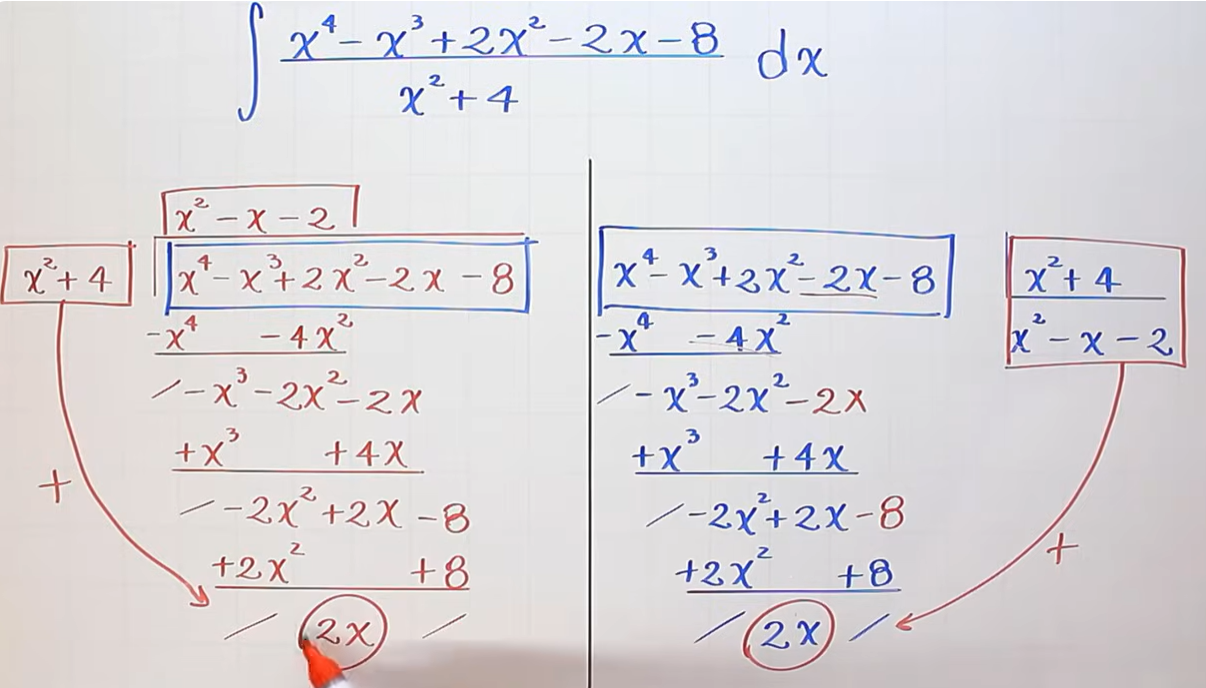 ∫ (x⁴ − x³ + 2x² − 2x − 8)/(x² + 4) dx
x² − x − 2
x² + 4 | x⁴ − x³ + 2x² − 2x − 8
−x⁴ − 4x²
/ −x³ − 2x² − 2x
+x³ + 4x
/ −2x² + 2x − 8
+2x² + 8
/ 2x /
+
x⁴ − x³ + 2x² − 2x − 8 | x² + 4
x² − x − 2
−x⁴ − 4x²
/ −x³ − 2x² − 2x
+x³ + 4x
/ −2x² + 2x − 8
+2x² + 8
/ 2x /
+